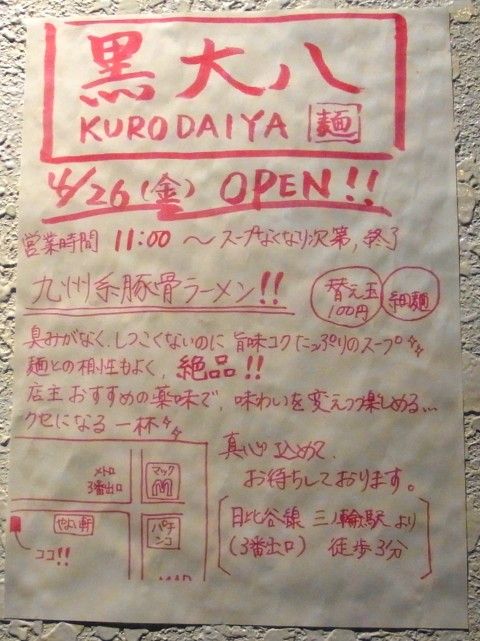 黒大八
KURODAIYA 麺
4/26(金) OPEN!!
営業時間 11:00 〜 スープなくなり次第、終了
九州系豚骨ラーメン!!
替え玉
100円
細麺
臭みがなく、しつこくないのに 旨味コクたっぷりのスープ
麺との相性もよく、絶品!!
店主おすすめの薬味で、味わいを変えつつ楽しめる…
クセになる 一杯
真心込めて、
お待ちしております。
日比谷線 三ノ輪駅 より
(3番出口) 徒歩3分
メトロ
3番出口
マック
やよい軒
パチ
ンコ
ココ!!
MAP